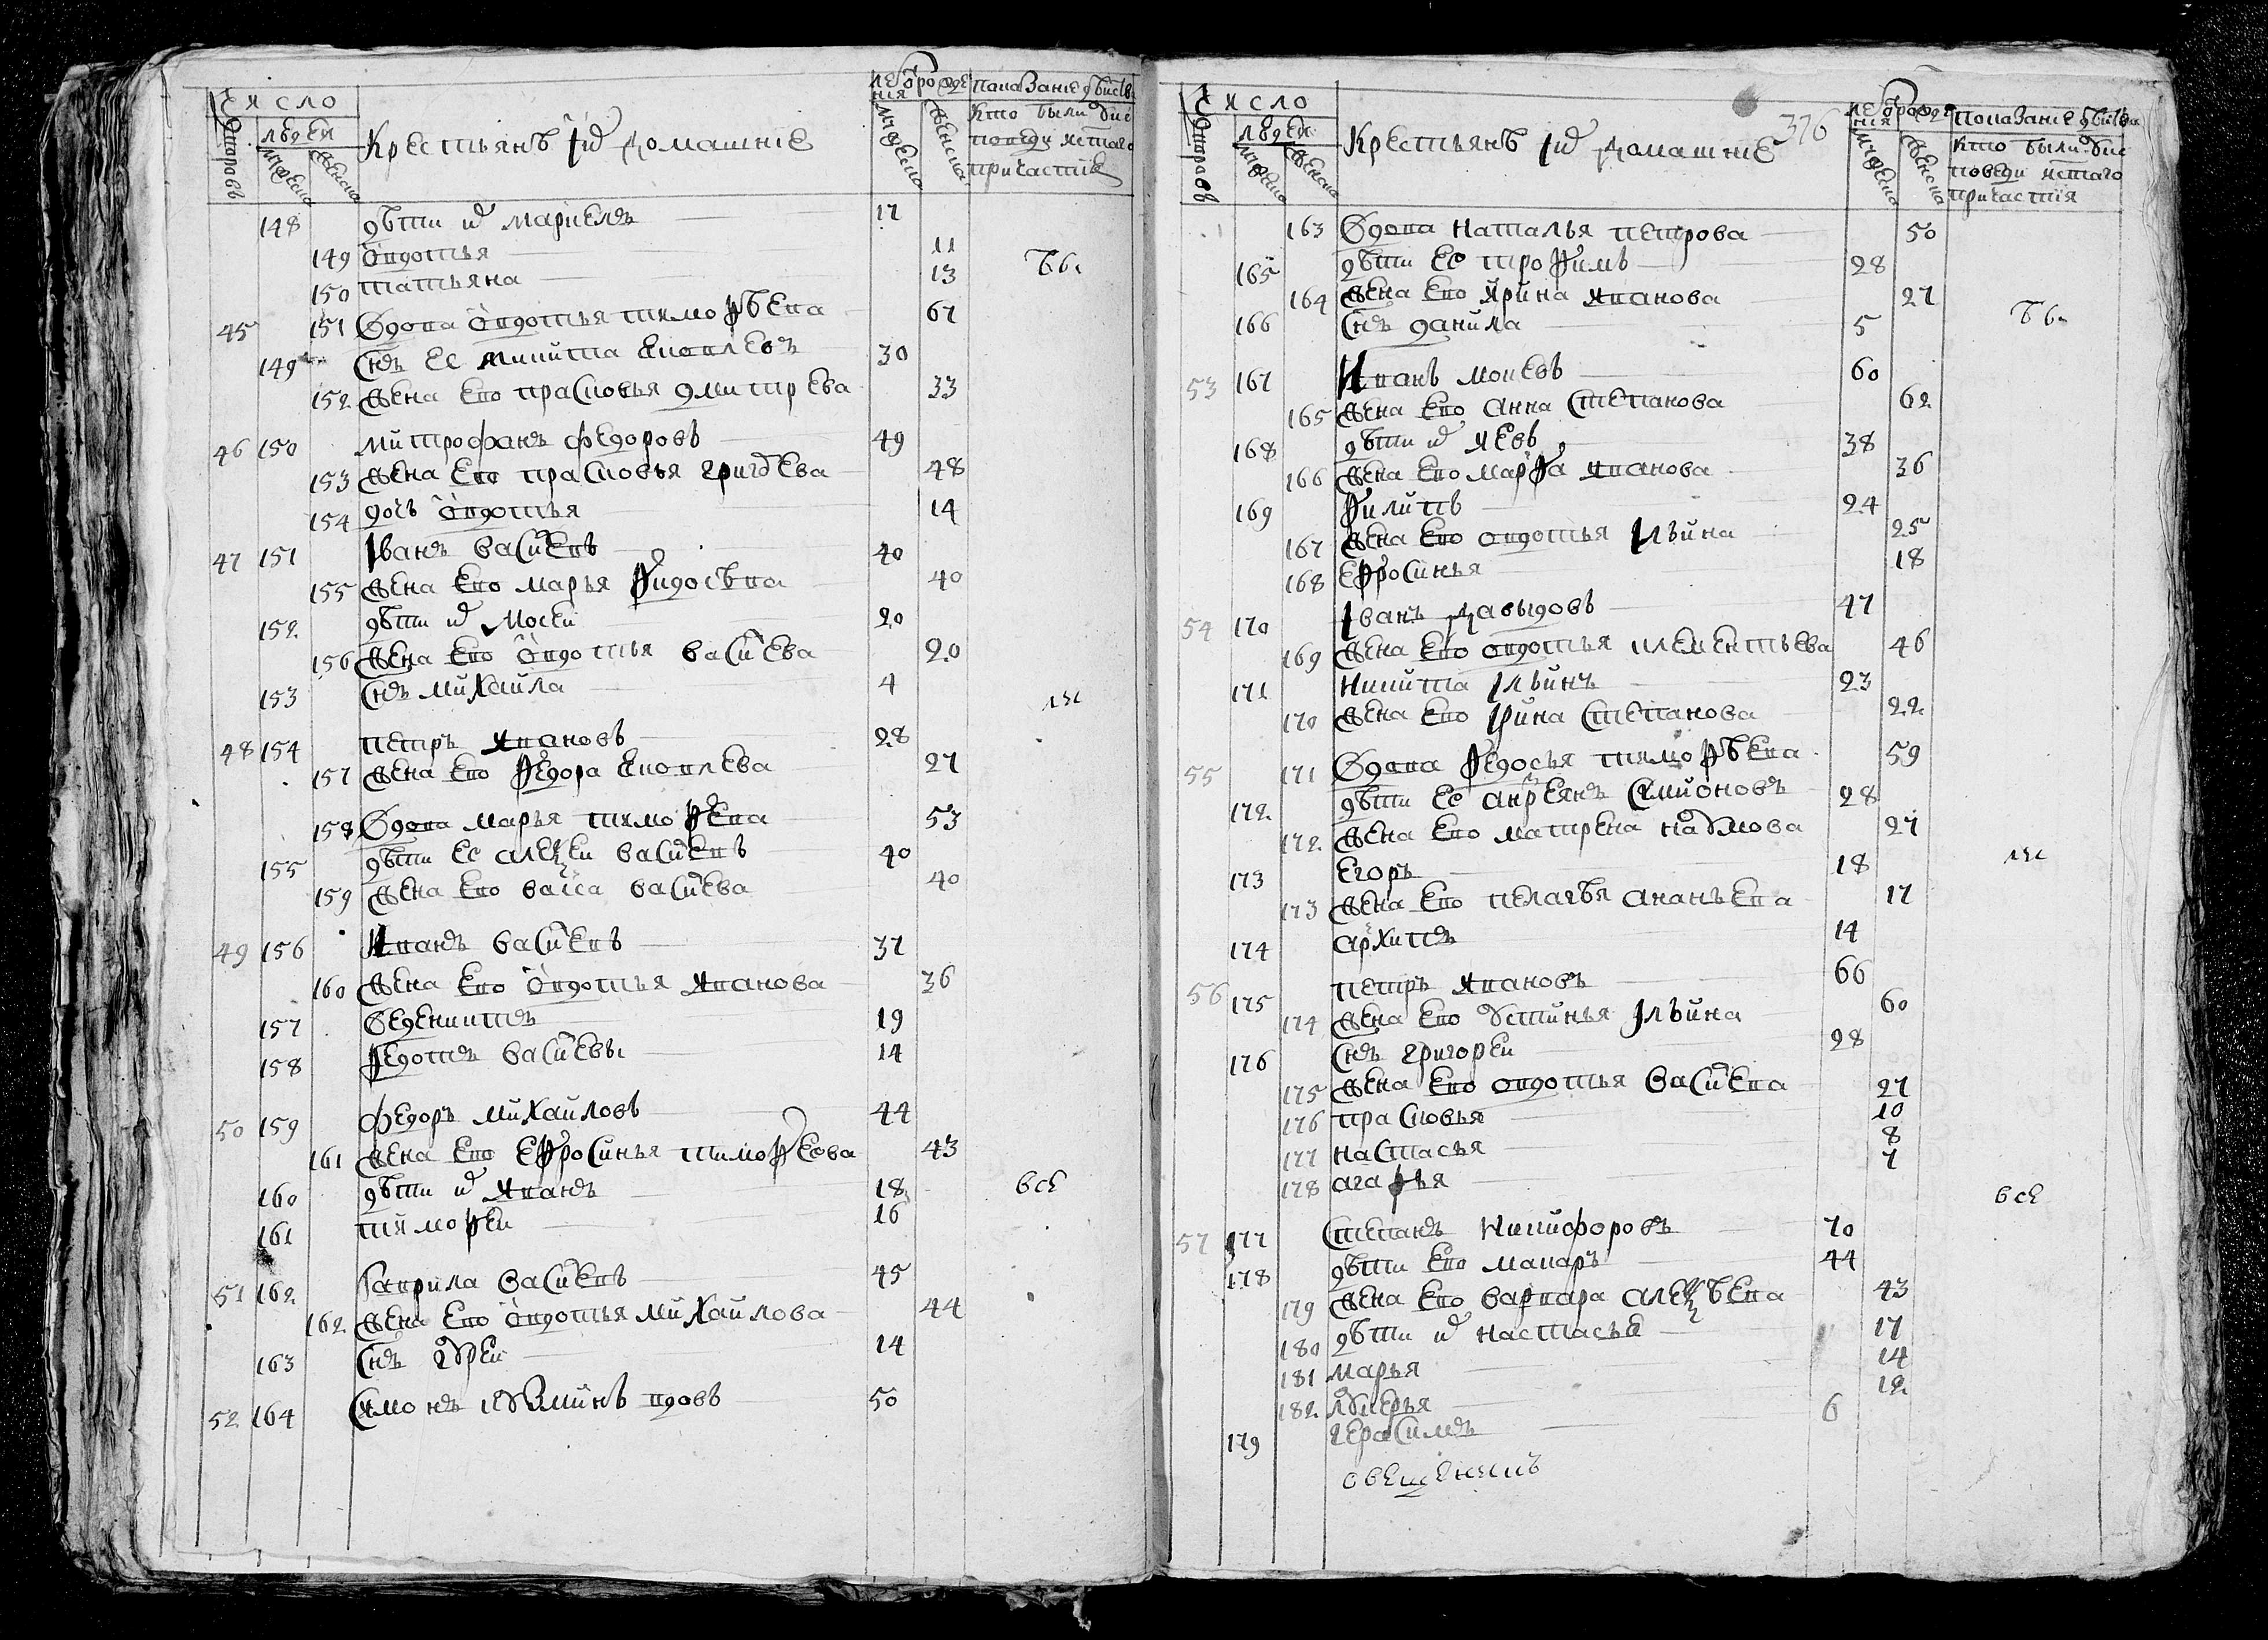 Число
Дворовъ
людей
мужеска
женска
Крестьянъ и ихъ домашние
летъ от рождения
мужеска
женска
показание действа
кто были у ис
поведи и стаго
причастия
148 дети их Маркелъ 17
149 Овдотья 11
150 татьяна 13
45 151 вдова Овдотья тимофеева 67
149 снъ ее Микита Яковлевъ 30
152 жена ево прасковья дмитрева 33
46 150 митрофанъ федоровъ 49
153 жена ево прасковья григорева 48
154 дочь Овдотья 14
47 151 Иванъ василевъ 40
155 жена ево марья
40
152 дети их Мосеи 20
156 жена ево Овдотья василева 20
153 снъ михаила 4
48 154 петръ ивановъ 28
157 жена ево федора яковлева 27
158 вдова марья тимофеева 53
155 дети ее алексеи василевъ 40
159 жена ево васса василева 40
49 156 Иванъ василевъ 37
160 жена ево Овдотья иванова 36
157 веденихтъ 19
158 федотъ василевы 14
50 159 федоръ михаиловъ 44
161 жена ево ефросинья тимофеева 43
160 дети их иванъ 18
все
161 тимофеи 16
51 162 Гаврила василевъ 45
162 жена ево Овдотья михаилова 44
163 снъ гуреи 14
52 164 Симонъ кузминъ вдовъ 50
Число
Дворовъ
людей
мужеска
женска
Крестьянъ и ихъ домашние
376
летъ от рождения
мужеска
женска
показание действа
кто были у ис
поведи и стаго
причастия
163 вдова Наталья петрова 50
165 дети ее трофимъ 28
164 жена ево ирина иванова 27
166 снъ данила 5
53 167 Иванъ мокевъ 60
165 жена ево анна степанова 62
168 дети их иевъ 38
166 жена ево марфа иванова 36
169 филипъ 24
167 жена ево овдотья ильина 25
168 ефросинья 18
54 170 Иванъ давыдовъ 47
169 жена ево овдотья клементьева 46
171 Никита ильинъ 23
170 жена ево ирина степанова 22
55 171 вдова федосья тимофеева 59
172 дети ее андреянъ симионовъ 28
172 жена ево матрена наумова 27
173 Егоръ 18
173 жена ево пелагея ананьева 17
174 архипъ 14
56 175 петръ ивановъ 66
174 жена ево устинья ильина 60
176 снъ григореи 28
175 жена ево овдотья василева 27
176 прасковья 10
177 настасья 8
178 агафья 7
все
57 177 степанъ никифоровъ 70
178 дети ево макаръ 44
179 жена ево варвара алексеева 43
180 дети их настасья 17
181 марья 14
182 лукерья 12
179 герасимъ 6